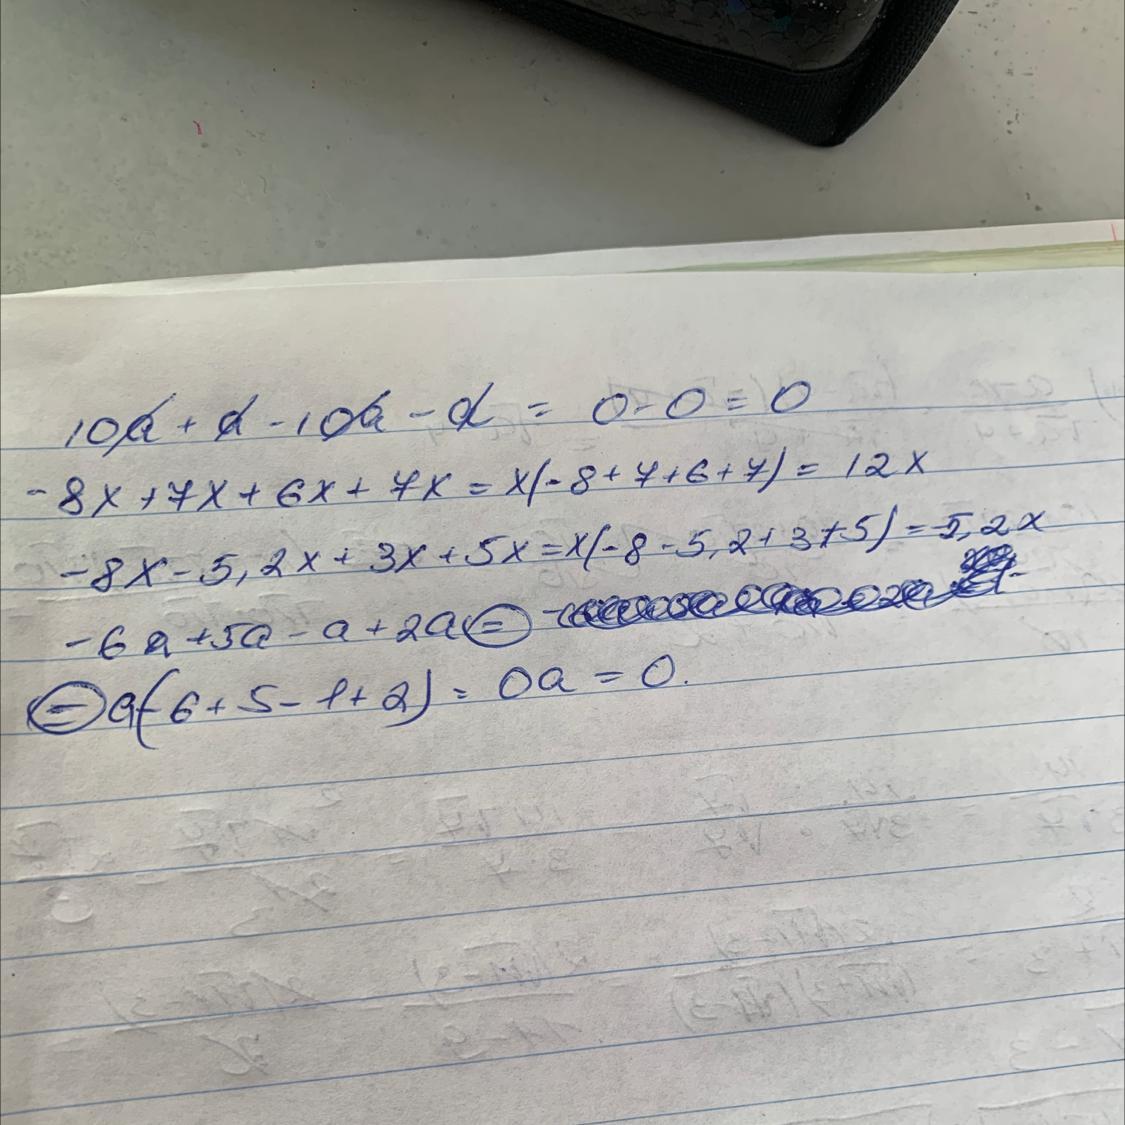 10a + d - 10a - d = 0 - 0 = 0
-8x + 7x + 6x + 7x = x(-8 + 7 + 6 + 7) = 12x
-8x - 5,2x + 3x + 5x = x(-8 - 5,2 + 3 + 5) = -5,2x
-6a + 5a - a + 2a =
= a(-6 + 5 - 1 + 2) = 0a = 0.